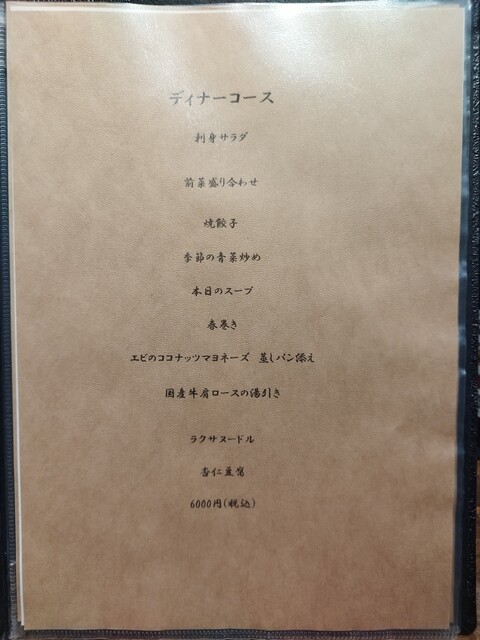 ディナーコース
刺身サラダ
前菜盛り合わせ
焼餃子
季節の青菜炒め
本日のスープ
春巻き
エビのココナッツマヨネーズ 蒸しパン添え
国産牛肩ロースの湯引き
ラクサヌードル
杏仁豆腐
6000円(税込)